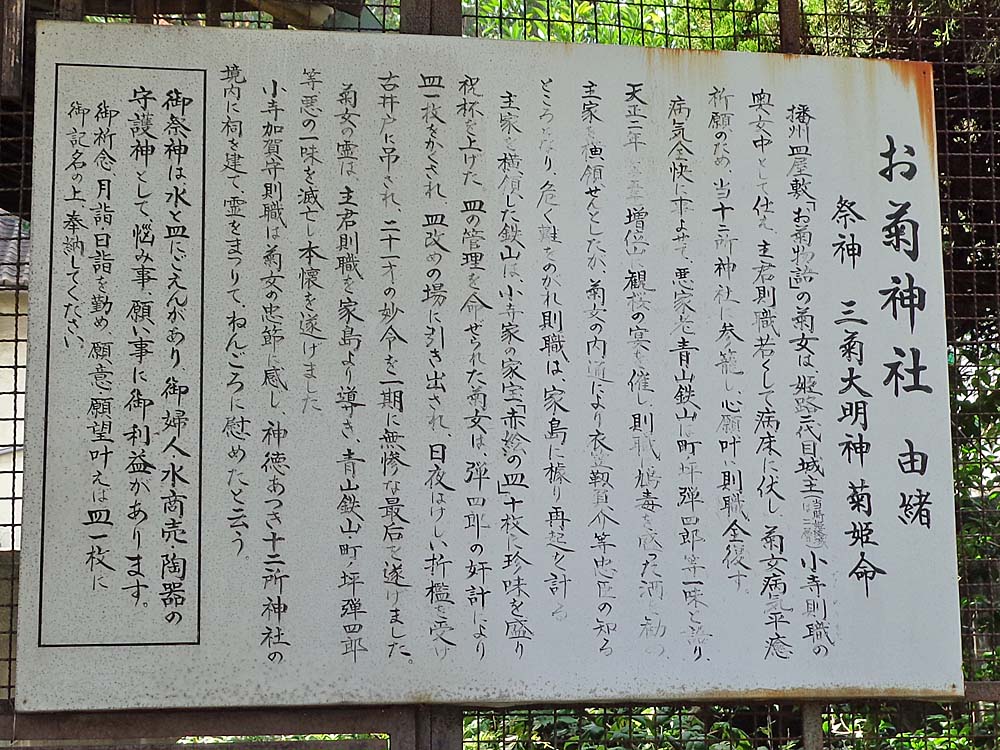 お菊神社 由緒
祭神 三菊大明神 菊姫命
播州皿屋敷「お菊物語」の菊女は、姫路 代目城主 小寺則職の
奥女中として仕え、主君則職若くして病床に伏し、菊女病気平癒
祈願のため、当十二所神社に参籠し、心願叶い則職全復す。
病気全快に事よせて、悪家老青山鉄山は町坪弾四郎等一味と り、
天正二年 増位山に観桜の宴を催し、則職に鴆毒を盛った酒を勧め、
主家を横領せんとしたが、菊女の内通により衣笠靱負介等忠臣の知る
ところとなり、危く難をのがれ則職は、家島に り再起を計る
主家を横領した鉄山は、小寺家の家宝「赤絵の皿」十枚に珍味を盛り
祝杯を上げた 皿の管理を命ぜられた菊女は、弾四郎の奸計により
皿一枚をかくされ、皿改めの場に引き出され、日夜はげしい折檻を受け
古井戸に吊され、二十一才の妙令を一期に無惨な最后を遂げました。
菊女の霊は、主君則職を家島より導き、青山鉄山、町ノ坪弾四郎
等悪の一味を滅亡し本懐を遂げました
小寺加賀守則職は菊女の忠節に感じ、神徳あつき十二所神社の
境内に祠を建て、霊をまつりて、ねんごろに慰めたと云う
御祭神は水と皿にごえんがあり、御婦人水商売、陶器の
守護神として、悩み事、願い事に御利益があります。
御祈念、月詣、日詣を勤め、願意、願望叶えば皿一枚に
御記名の上、奉納してください。